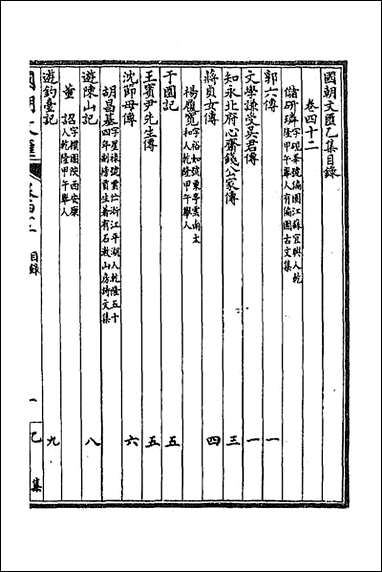 國朝文匯乙集目錄
卷四十二
儲研璘字硯峯號編圃江蘇宜興人乾隆甲午舉人有編圃古文集
郭六傳 一
文學謙受吳君傳 一
知永北府心齋錢公家傳 三
蔣貞女傳 四
楊履寬字裕如號東亭雲南太和人乾隆甲午舉人
于園記 五
王實尹先生傳 五
沈節母傳 六
胡昌基字星祿號雲佇浙江平湖人乾隆五十四年副榜貢生著有石瀨山房詩文集
遊陳山記 八
董詔字樸園陝西安康人乾隆甲午舉人
遊釣臺記 九
目錄
一
乙集